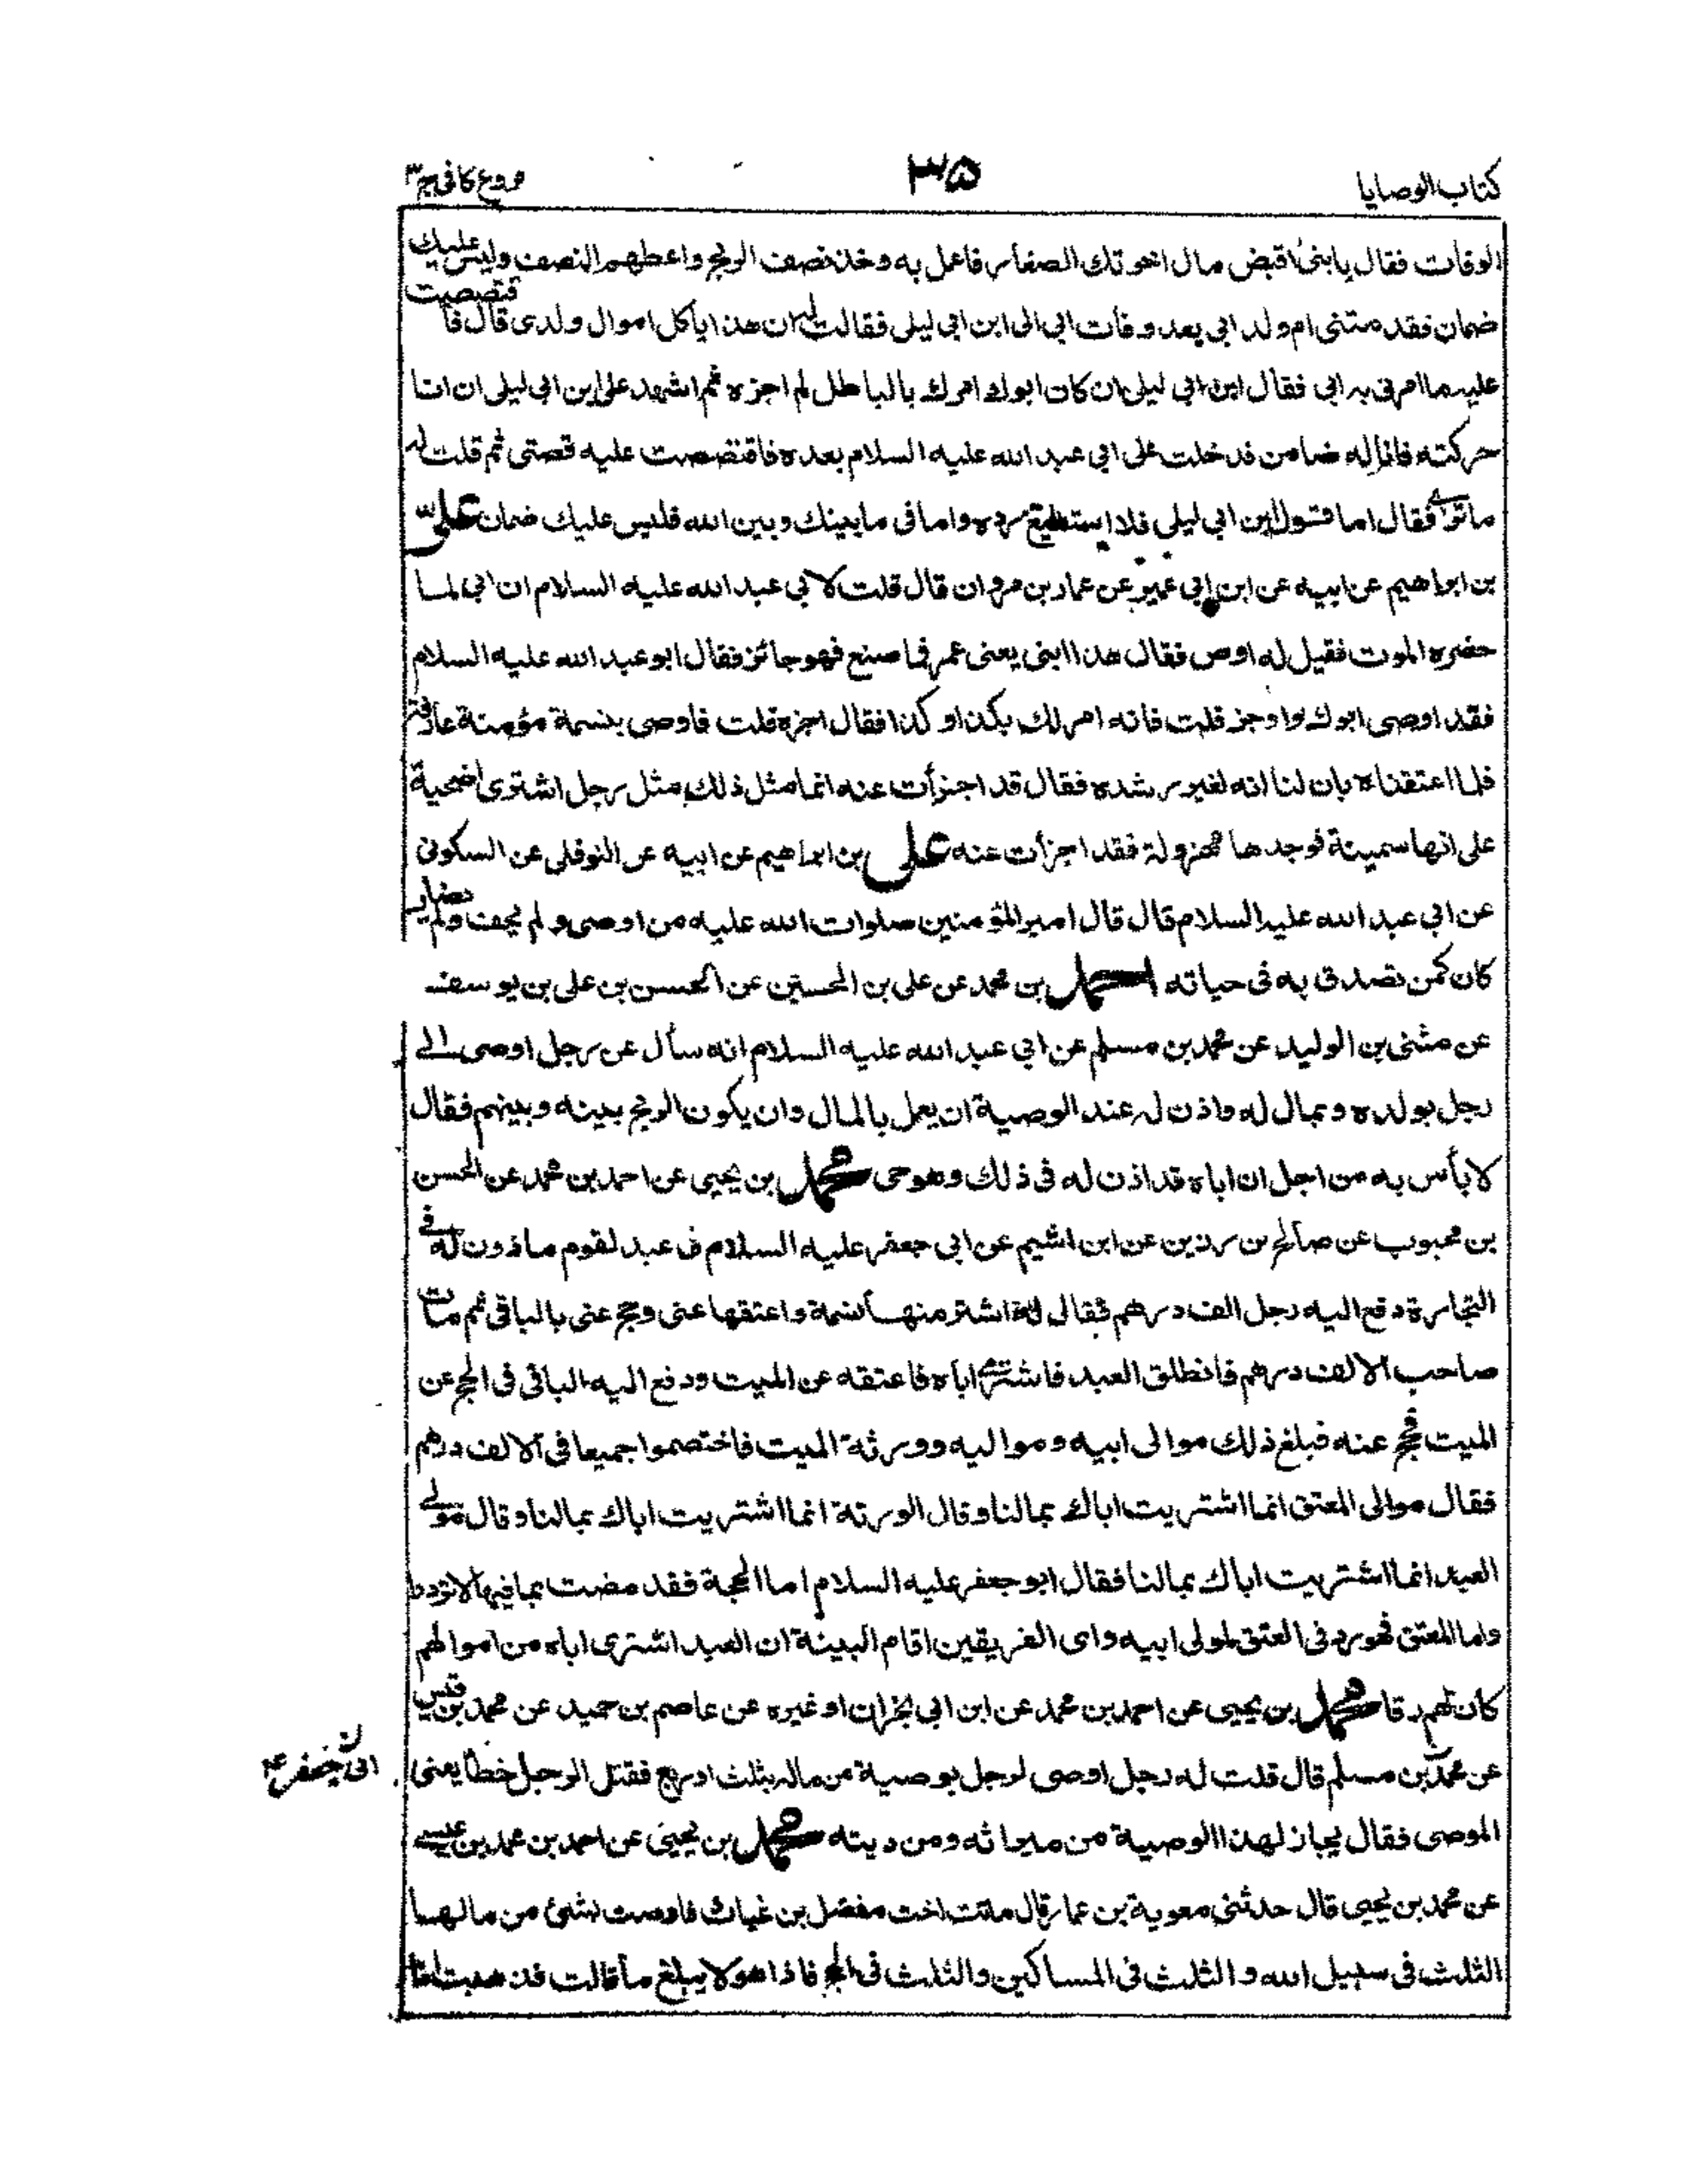 كتاب الوصايا ٣٥ فروع كافى ج٣
الوفات فقال يا بنى اقبض مال اخوتك الصغار فاعمل به وخذ نصف الربح واعطهم النصف وليس عليك
ضمان فقدمتنى ام ولد ابى بعد وفات ابى الى ابن ابى ليلى فقالت له ان هذا ياكل اموال ولدى قال فاقتصصت
عليه ما امرنى به ابى فقال ابن ابى ليلى ان كان ابوك امرك بالباطل لم اجزه ثم اشهد على ابن ابى ليلى ان انا
حركته فانا له ضامن فدخلت على ابى عبد الله عليه السلام بعده فاقتصصت عليه قصتى ثم قلت له
ما ترى فقال اما قول ابن ابى ليلى فلا استطيع رده واما فى ما بينك وبين الله فليس عليك ضمان على
بن ابراهيم عن ابيه عن ابن ابى عمير عن عمار بن مروان قال قلت لابى عبد الله عليه السلام ان ابى لما
حضره الموت فقيل له اوص فقال هذا ابنى يعنى عمر فما صنع فهو جائز فقال ابو عبد الله عليه السلام
فقد اوصى ابوك واوجز قلت فانه امر لك بكذا وكذا فقال اجزه قلت فاوصى بنسمة مؤمنة عارفة
فلما اعتقناه بان لنا انه لغير رشده فقال قد اجزأت عنه انما مثل ذلك مثل رجل اشترى اضحية
على انها سمينة فوجدها مهزولة فقد اجزأت عنه على بن ابراهيم عن ابيه عن النوفلى عن السكونى
عن ابى عبد الله عليه السلام قال قال امير المؤمنين صلوات الله عليه من اوصى ولم يحف ولم يضار
كان كمن تصدق به فى حياته احمد بن محمد عن على بن الحسين عن الحسن بن على بن يوسف
عن مثنى بن الوليد عن محمد بن مسلم عن ابى عبد الله عليه السلام انه سأل عن رجل اوصى الى
رجل بولده وبمال له واذن له عند الوصية ان يعمل بالمال وان يكون الربح بينه وبينهم فقال
لا بأس به من اجل ان اباه قد اذن له فى ذلك وهو حى محمد بن يحيى عن احمد بن محمد عن الحسن
بن محبوب عن صالح بن رزين عن ابن اشيم عن ابى جعفر عليه السلام فى عبد لقوم ماذون له فى
التجارة دفع اليه رجل الف درهم فقال له اشتر منها نسمة واعتقها عنى وحج عنى بالباقى ثم مات
صاحب الالف درهم فانطلق العبد فاشترى اباه فاعتقه عن الميت ودفع اليه الباقى فى الحج عن
الميت فحج عنه فبلغ ذلك موالى ابيه ومواليه وورثة الميت فاختصموا جميعا فى الالف درهم
فقال موالى المعتق انما اشتريت اباك بمالنا وقال الورثة انما اشتريت اباك بمالنا وقال مولى
العبد انما اشتريت اباك بمالنا فقال ابو جعفر عليه السلام اما الحجة فقد مضت بما فيها لا ترد
واما المعتق فهو رد فى العتق لمولى ابيه واى الفريقين اقام البينة ان العبد اشترى اباه من اموالهم
كان لهم رقا محمد بن يحيى عن احمد بن محمد عن ابن ابى نجران او غيره عن عاصم بن حميد عن محمد بن قيس
عن محمد بن مسلم قال قلت له رجل اوصى لرجل بوصية من ماله بثلث او ربع فقتل الرجل خطأ يعنى
ابى جعفر ع ن
الموصى فقال يجاز لهذا الوصية من ميراثه ومن ديته محمد بن يحيى عن احمد بن محمد بن عيسى
عن محمد بن يحيى قال حدثنى معوية بن عمار قال ماتت اخت مفضل بن غياث فاوصت بشئ من مالها
الثلث فى سبيل الله والثلث فى المساكين والثلث فى الحج فاذا هو لا يبلغ ما قالت فذهبت انا